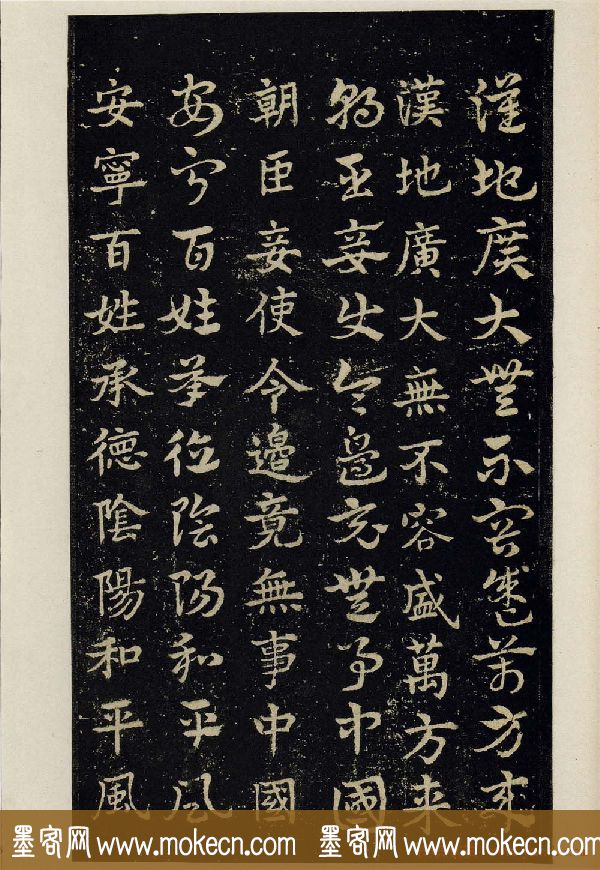 漢地廣大無不容盛萬方来
漢地廣大無不容盛萬方来
朝臣妾使令邊竟無事中國
朝臣妾使令邊竟無事中國
安寧百姓承德陰陽和平風
安寧百姓承德陰陽和平風
墨客网 www.mokecn.com 墨客网 www.mokecn.com